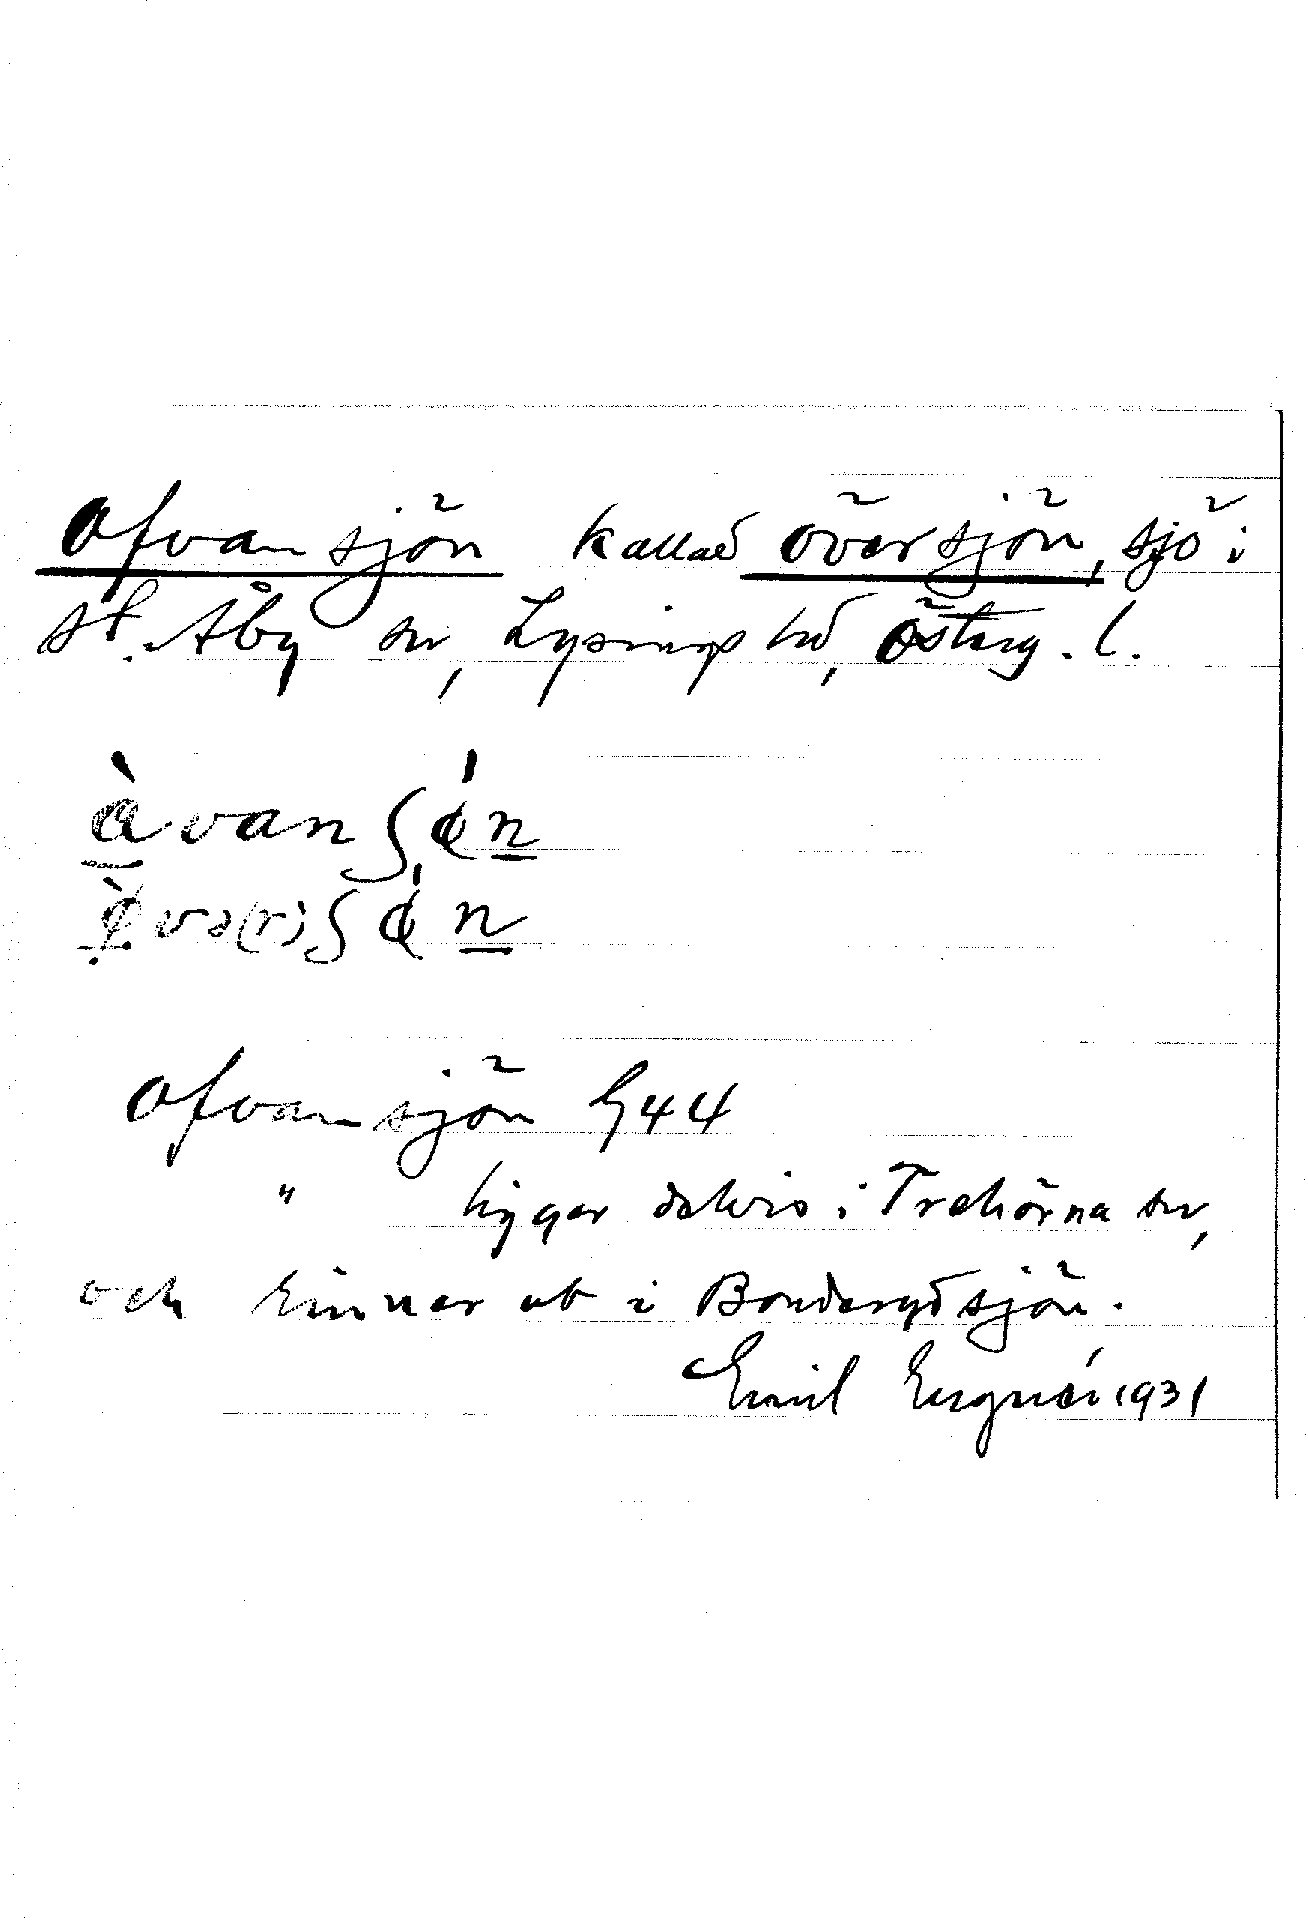 Ofvansjön kallad översjön, sjö i
St. Åby sn, Lysings hd, Österg. l.
àvanʃǿn
ǿvə(r)ʃǿn
Ofvansjön G44
" ligger delvis i Trehörna sn,
och rinner ut i Bonderydsjön.
Emil 1931